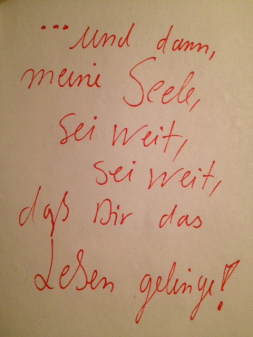 ...und dann,
meine Seele,
sei weit,
sei weit,
daß Dir das
Leben gelinge!